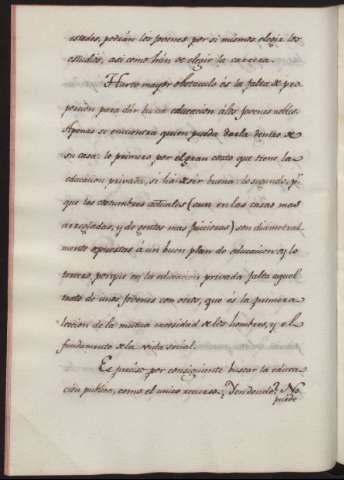 estados, podrán los Jovenes por si mismos elegir los
estudios, asi como hán de elegir la carrera.
Harto mayor obstaculo és la falta de pro-
porción para dár buena educacion álos Jovenes nobles.
Apenas se encuentra quien pueda darla dentro de
su casa: lo primero, por el gran costo que tiene la
educacion privada, si há de ser buena: lo segundo, pr.
que las costumbres actuales (aun en las casas mas
arregladas, y de gentes mas juiciosas) son diametral-
mente opuestas á un buen plan de educacion: y lo
tercero, porque en la educacion privada falta aquel
trato de unos Jovenes con otros, que és la primera
leccion de la mutua necesidad de los hombres, y el
fundamento de la vida social.
Es preciso por consiguiente buscar la educa-
cion publica, como el unico recurso. ¿Y en donde? No
puede